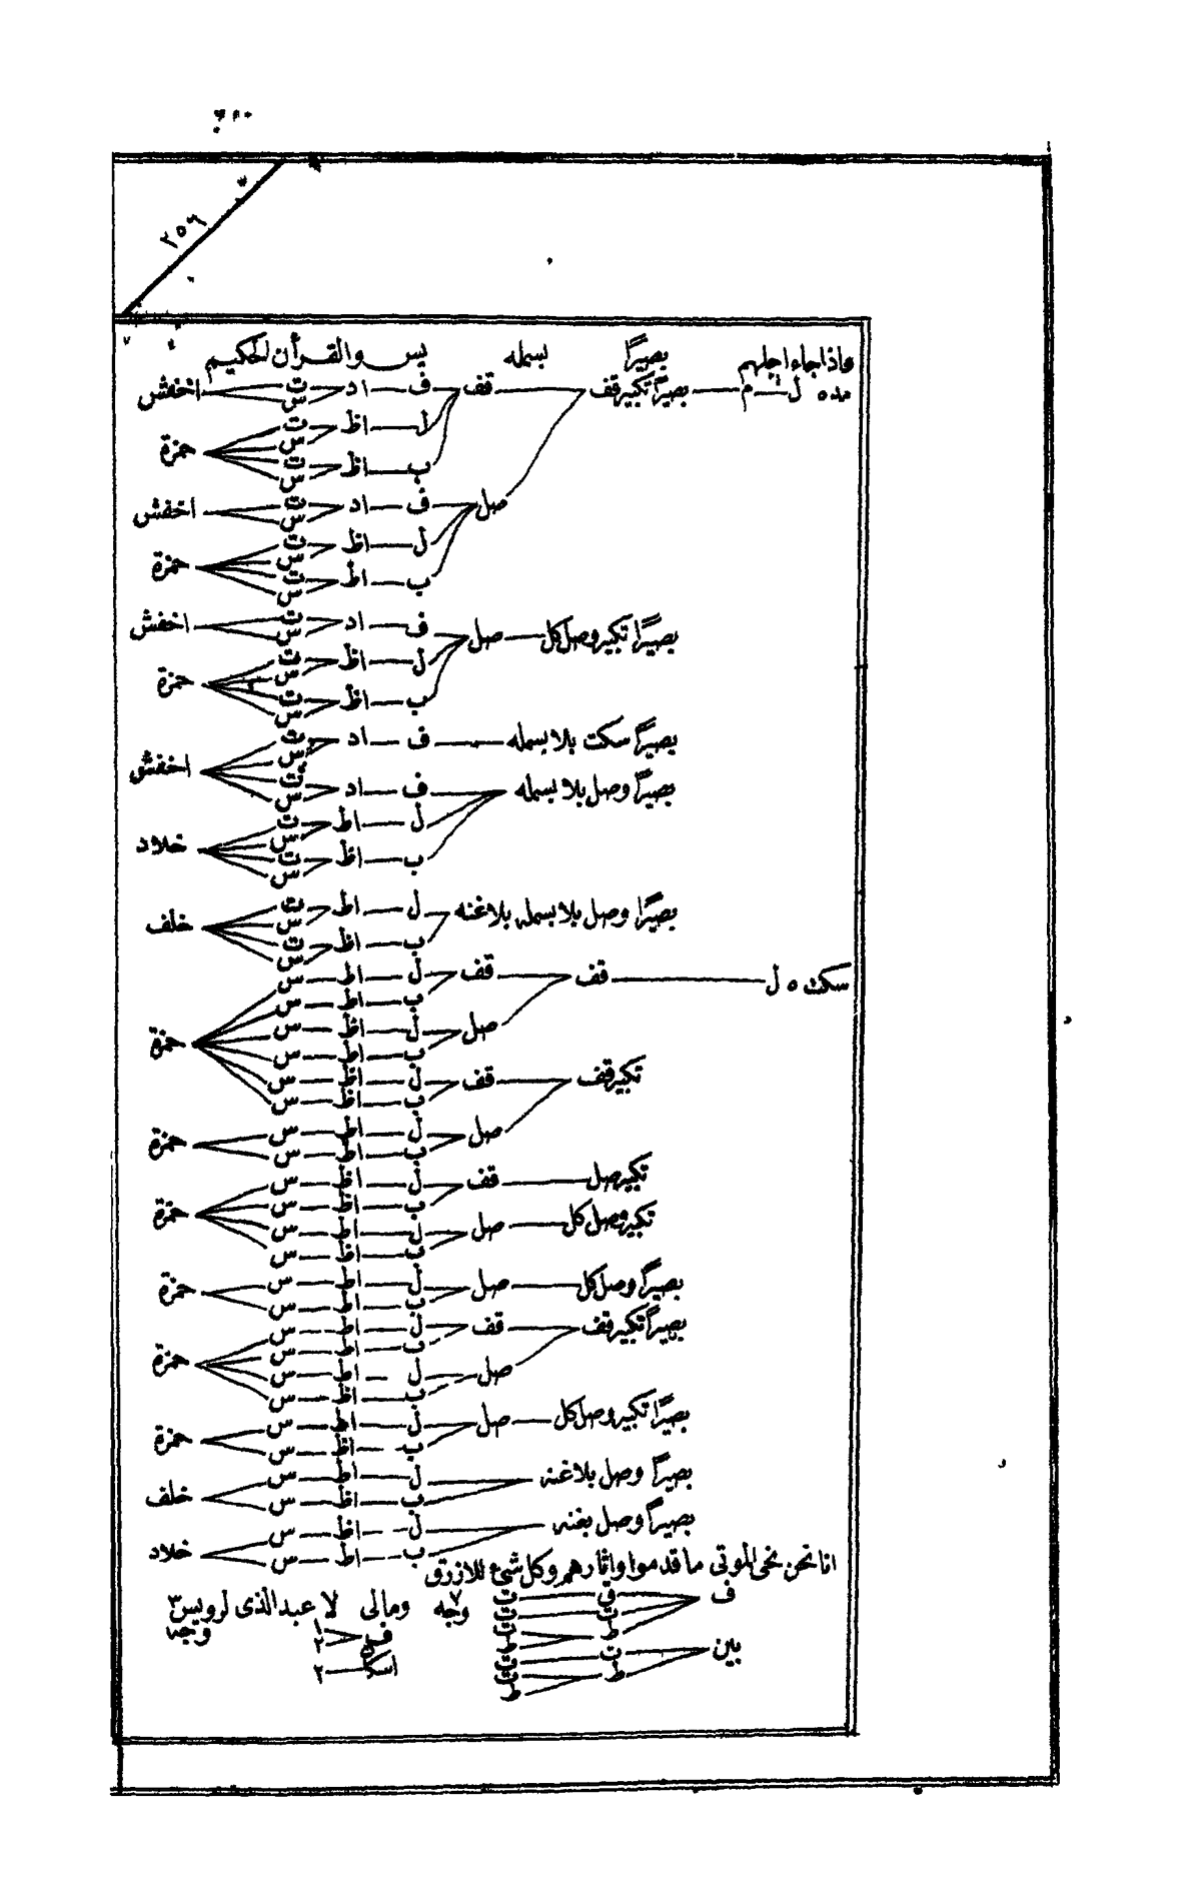 ٢٥٦
فاذا جاء اجلهم بصيرًا بسمله يس والقرأن الحكيم
مده ل م بصيرًا تكبير قف قف ف اد ت س اخفش
ل اظ ت س
ب اظ ت س حمزة
صل ف اد ت س اخفش
ل اظ ت س
ب اظ ت س حمزة
بصيرًا تكبير وصل كل صل ف اد ت س اخفش
ل اظ ت س
ب اظ ت س حمزة
بصيرًا سكت بلا بسمله ف اد ت س
بصيرًا وصل بلا بسمله ف اد ت س اخفش
ل اظ ت س
ب اظ ت س خلاد
بصيرًا وصل بلا بسمله بلاغنه ل اظ ت س
ب اظ ت س خلف
سكت ه ل قف قف ل اظ س
ب اظ س
صل ل اظ س
ب اظ س حمزة
تكبير قف قف ل اظ س
ب اظ س
صل ل اظ س
ب اظ س حمزة
تكبير صل قف ل اظ س
ب اظ س
تكبير وصل كل صل ل اظ س
ب اظ س حمزة
بصيرًا وصل كل صل ل اظ س
ب اظ س حمزة
بصيرًا تكبير قف قف ل اظ س
ب اظ س
صل ل اظ س
ب اظ س حمزة
بصيرًا تكبير وصل كل صل ل اظ س
ب اظ س حمزة
بصيرًا وصل بلاغنه ل اظ س
ب اظ س خلف
بصيرًا وصل بغنه ل اظ س
ب اظ س خلاد
انا نحن نحى الموتى ما قدموا واثارهم وكل شئ للازرق
ف ق ق
ت ت
ط ت ط
بين ت ت
ط ت ط
٧ وجه
ومالى لا عبد الذى لرويس ٣ وجه
ف ١ ٢
اسكان ٢